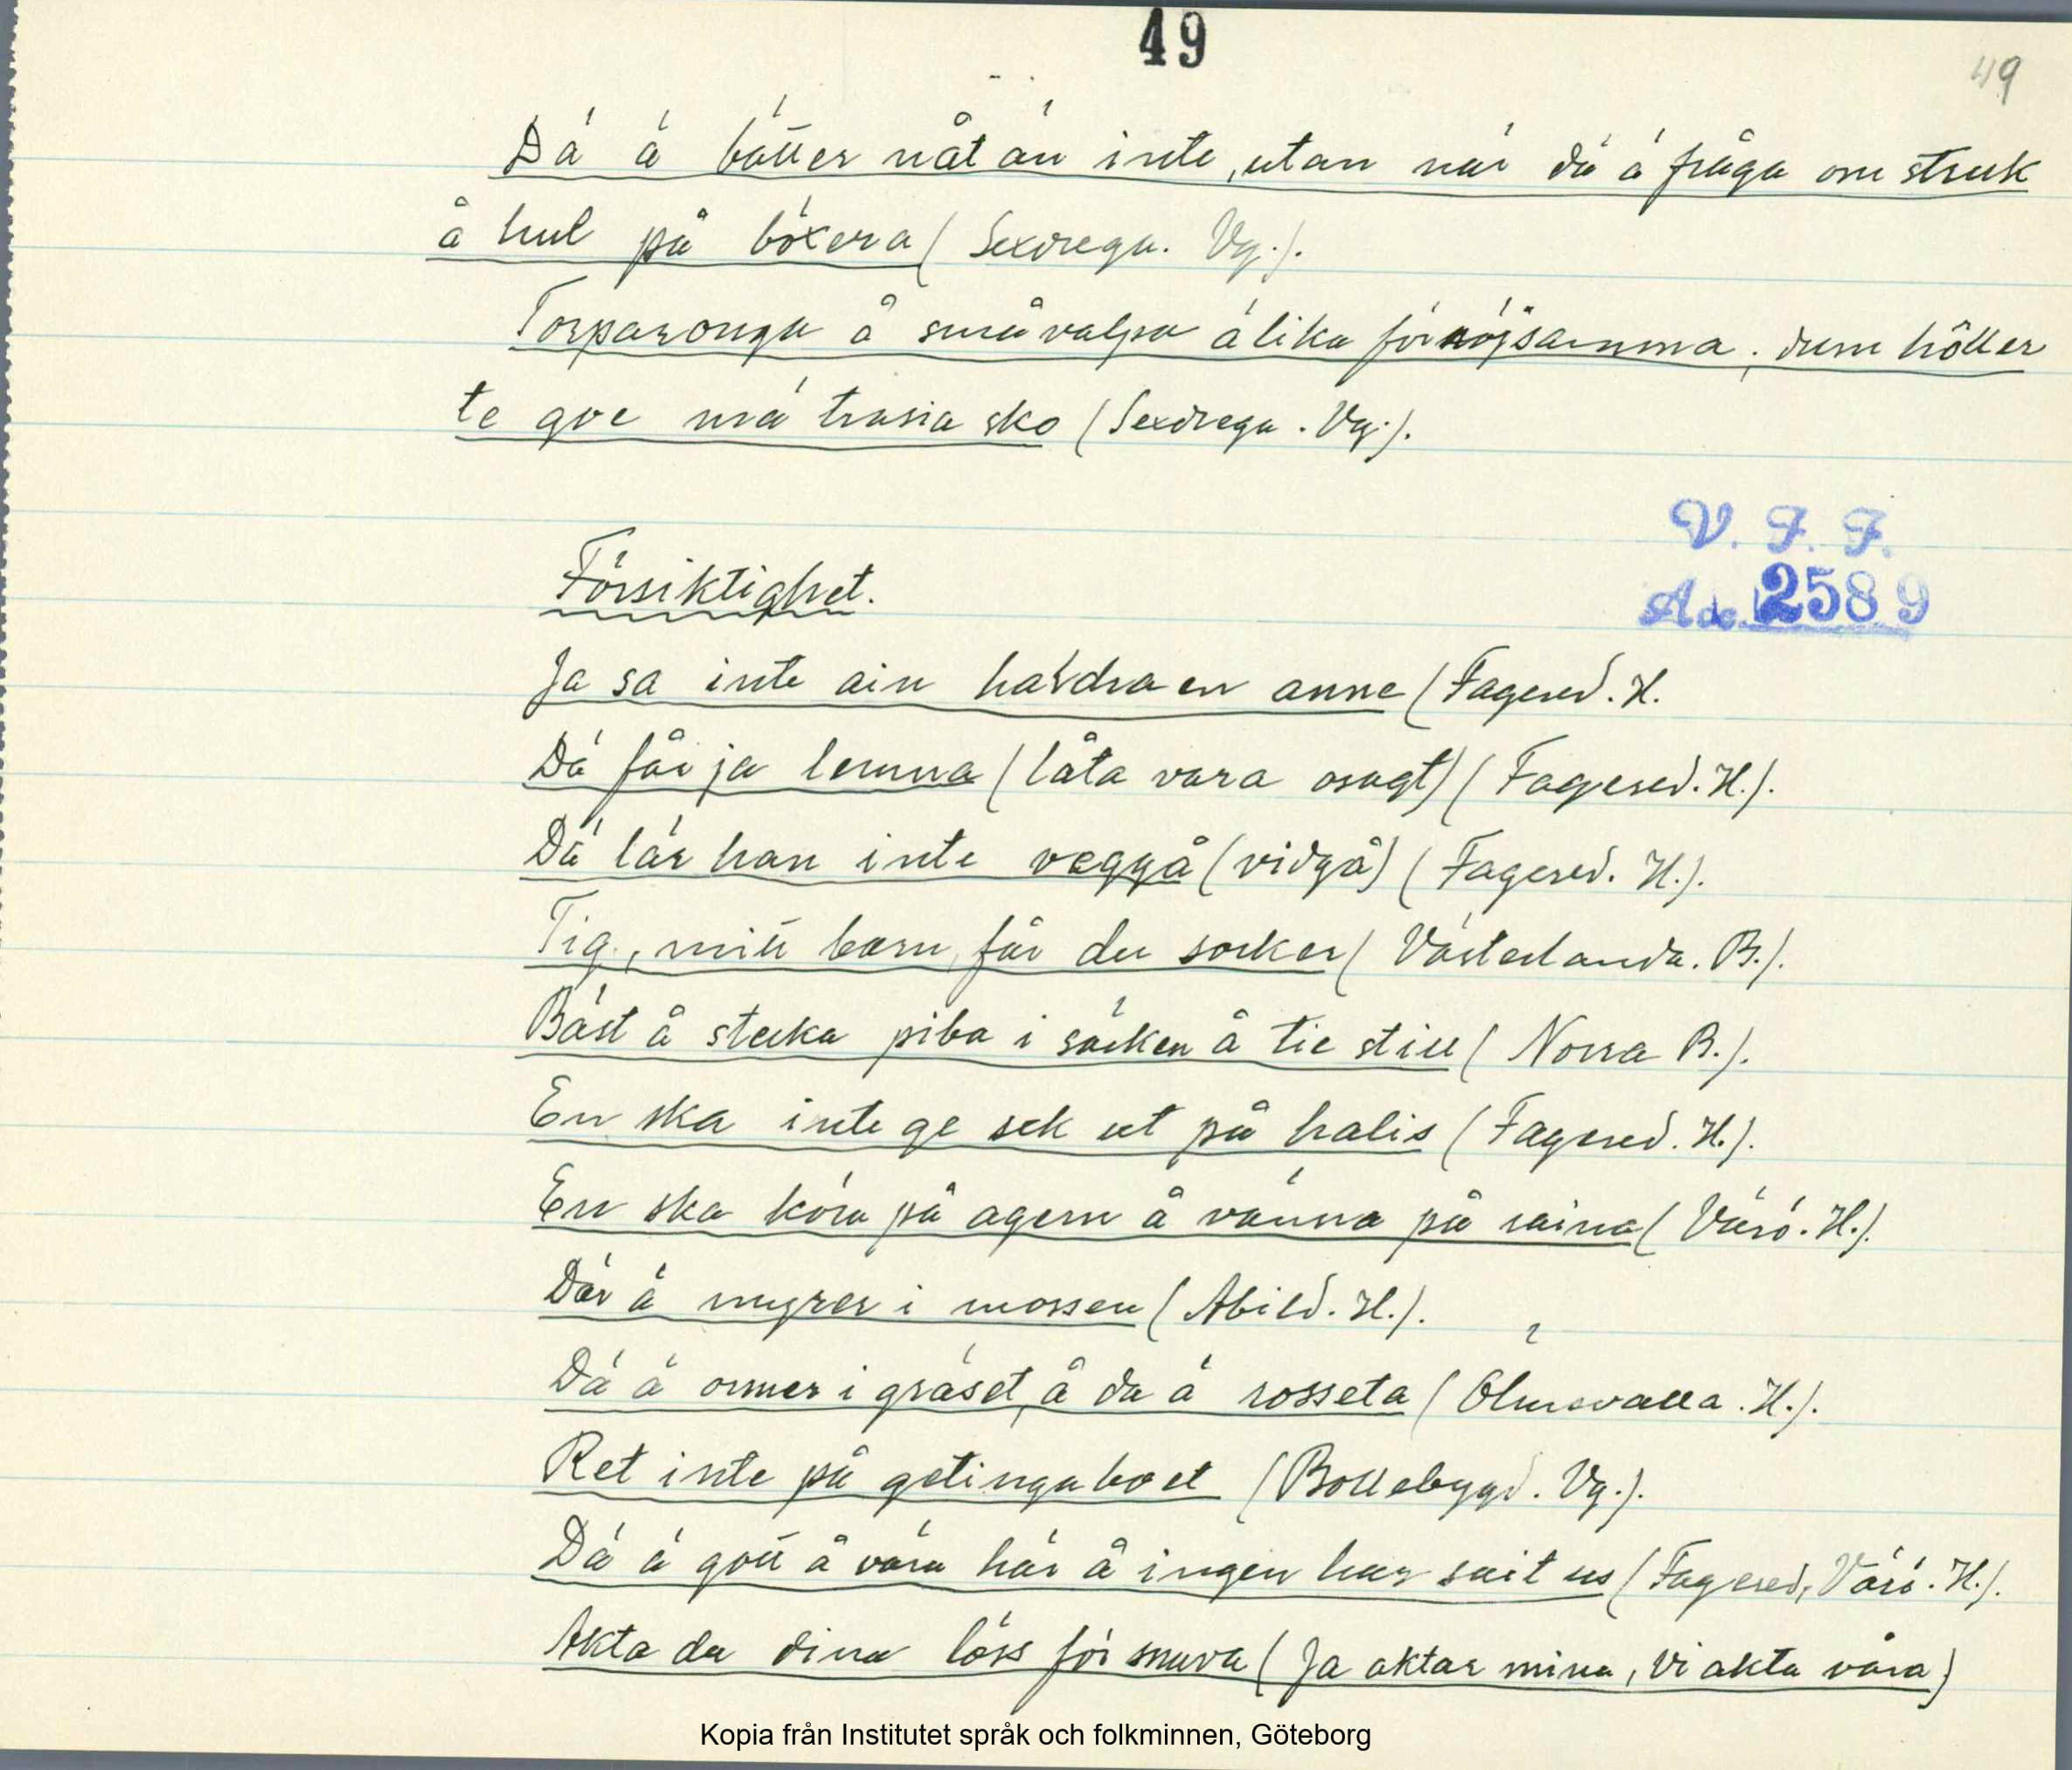 49
49
Dä ä bätter nåt än inte, utan när dä ä fråga om struk
å hul på böxera (Sexdrega. Vg.).
Torparonga å små valpa ä lika förnöjsamma; dum håller
te goe mä trasia sko (Sexdrega. Vg.).
V. F. F.
Acc. 2589
Försiktighet.
Ja sa inte ain halvdra en anne (Fagered. H.
Dä får ja lemna (låta vara osagt) (Fagered. H.).
Dä lär han inte veggå (vidgå) (Fagered. H.).
Tig, mitt barn, får du socker (Västerlanda. B.).
Bäst å stecka piba i säcken å tie still (Norra B.).
En ska inte ge sek ut på halis (Fagered. H.).
En ska köra på agern å vänna på raina (Värö. H.).
Där ä myrer i mossen (Abild. H.).
Dä ä ormer i gräset, å da ä rosseta (Ölmevalla. H.).
Ret inte på getingaboet (Bollebygd. Vg.).
Dä ä gött å vara här å ingen har sait us (Fagered, Värö. H.).
Akta du dina löss för snuva (Ja aktar mina, Vi akta våra)
Kopia från Institutet språk och folkminnen, Göteborg